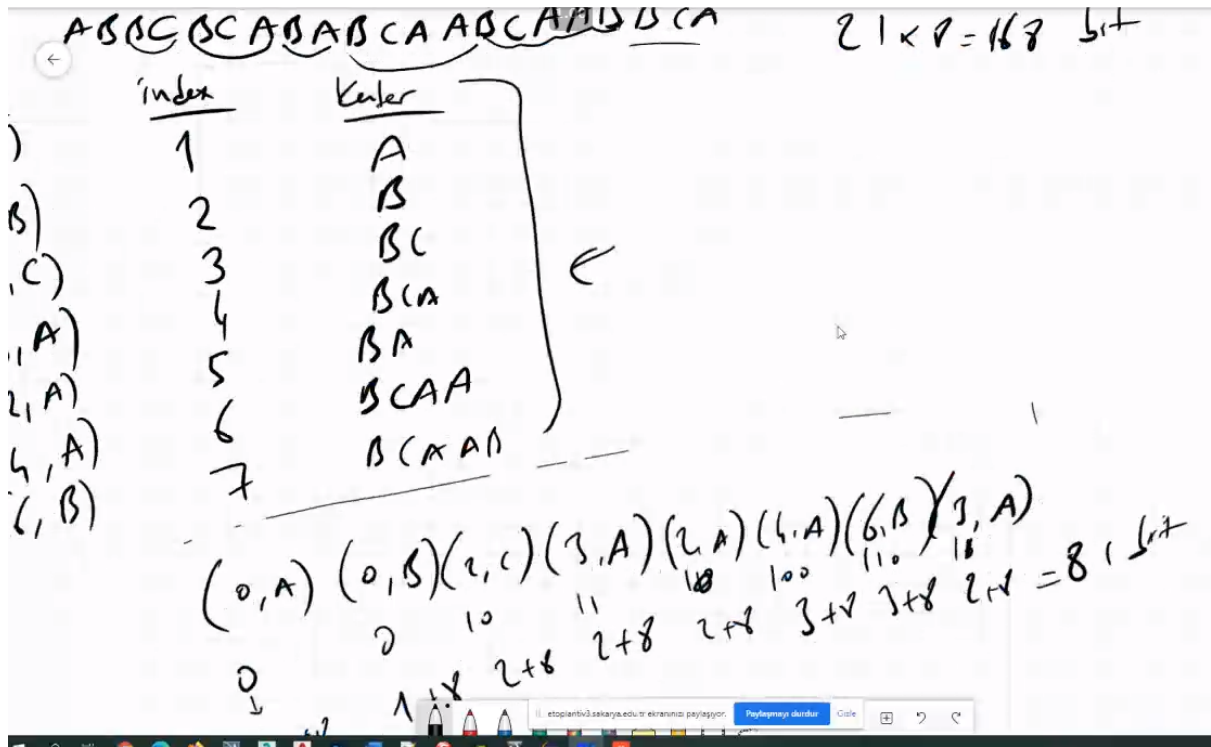 ABBCBCABABCAABCAABBCA 21x8=168 bit
index
1 A
B) 2 B
,C) 3 BC
,A) 4 BCA
2,A) 5 BA
4,A) 6 BCAA
6,B) 7 BCAAB
(0,A) (0,B) (2,C) (3,A) (2,A) (4,A) (6,B) (3,A)
0 0 10 11 10 100 110
1+8 2+8 2+8 2+8 3+8 3+8 2+8 = 8 bit
etoplantiv3.sakarya.edu.tr ekranınızı paylaşıyor. Paylaşmayı durdur Gizle